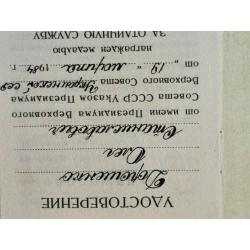 УДОСТОВЕРЕНИЕ
Дорошенко
Олег
Станиславович
От имени Президиума Верховного
Совета СССР Указом Президиума
Верховного Совета Украинской ССР
от „19" марта 1984 г.
награжден медалью
ЗА ОТЛИЧНУЮ СЛУЖБУ